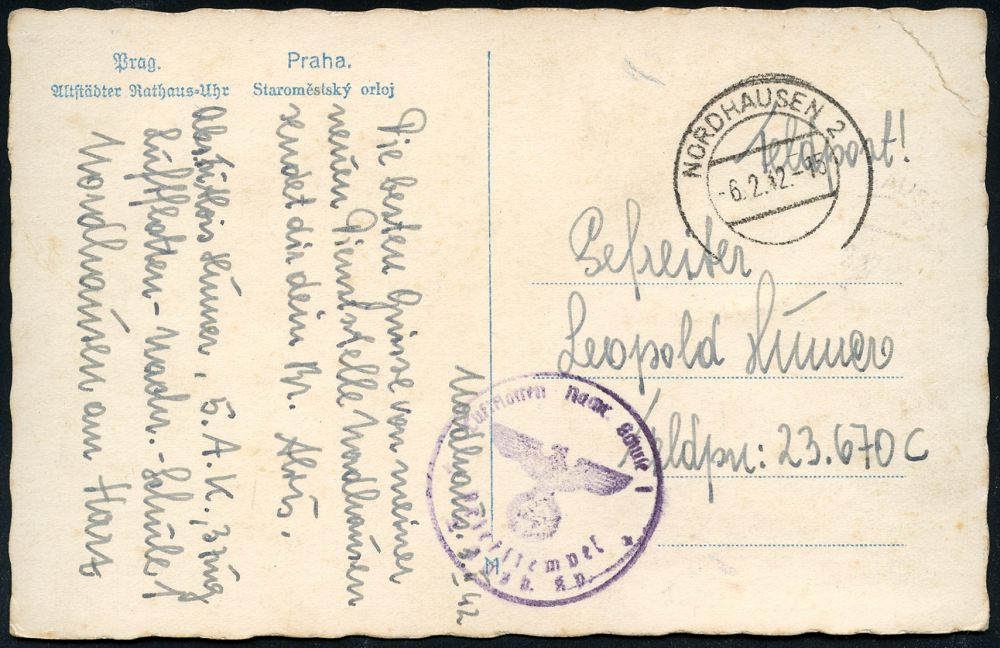 Prag.
Altstädter Rathaus-Uhr
Praha.
Staroměstský orloj
NORDHAUSEN 2
-6.2.42.-15
Feldpost!
Gefreiter
Leopold
Feldpn: 23.670 C
Nordhausen
Die besten Grüsse von meiner
neuen Dienststelle Nordhausen
sendet dir dein Br. Alois.
Abs.: Alois 5. A.K., 3 Zug
Luftflotten-Nachr.-Schule 1
Nordhausen am Harz
Luftflotten Nachr. Schule 1
Dienststempel